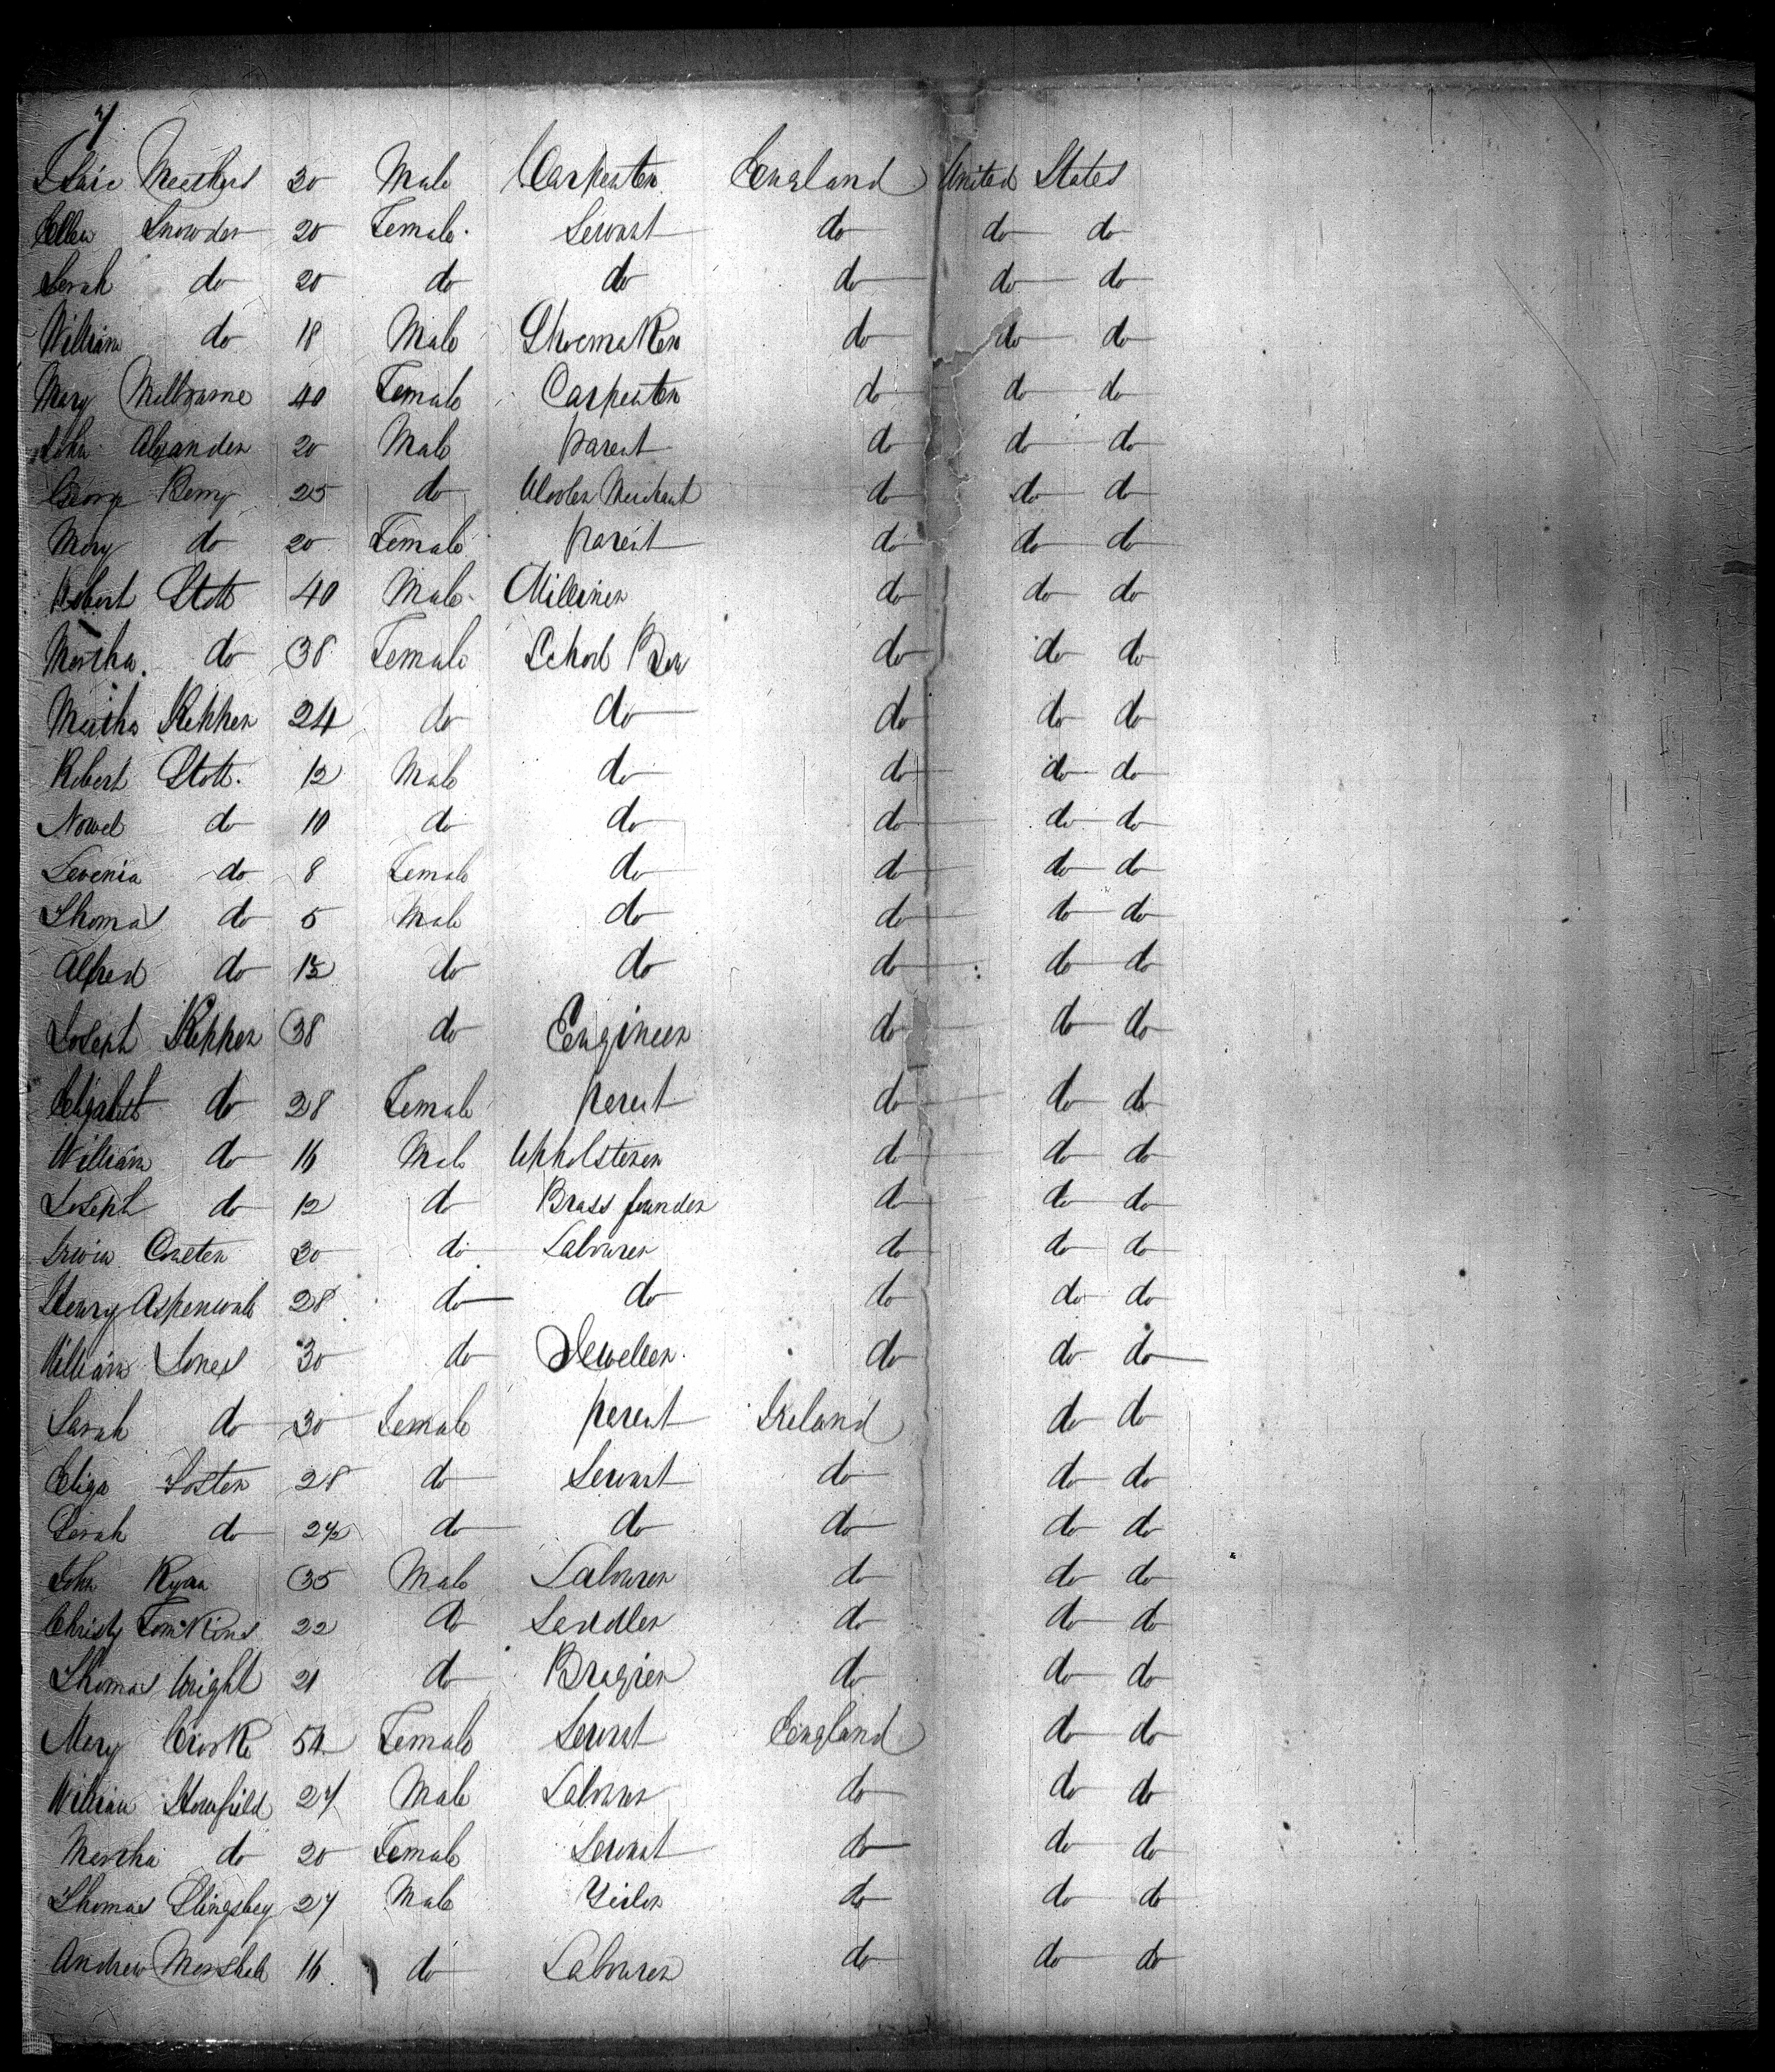 7
Isaic Meathers 30 Male Carpenter England United States
Ellen Snowden 20 Female Servant do do do
Sarah do 20 do do do do do
William do 18 Male Shoemaker do do do
Mary 40 Female Carpenter do do do
John Alexander 20 Male parent do do do
George Berry 25 do Woolen Merchant do do do
Mary do 20 Female parent do do do
Robert Stott 40 Male Milliner do do do
Martha do 38 Female School do do do
Martha Kepper 24 do do do do do
Robert Stott 12 Male do do do do
Nowel do 10 do do do do do
Levenia do 8 Female do do do do
Thomas do 5 Male do do do do
Alfred do do do do do do
Joseph Kepper 38 do Engineer do do do
Elizabeth do 28 Female parent do do do
William do 16 Male Upholsterer do do do
Joseph do 12 do Brass founder do do do
Irwin 30 do Labourer do do do
Henry Aspenwale 28 do do do do do
William Jones 30 do Jeweller do do do
Sarah do 30 Female parent Ireland do do
Eliza Foster 28 do Servant do do do
Sarah do do do do do do
John Ryan 35 Male Labourer do do do
Christy Tomkins 22 do Saddler do do do
Thomas Wright 21 do Brazier do do do
Mary Crooke 54 Female Servant England do do
William Howfield 27 Male Labourer do do do
Martha do 20 Female Servant do do do
Thomas Slingsbey 27 Male do do do
Andrew Marshall 16 do Labourer do do do